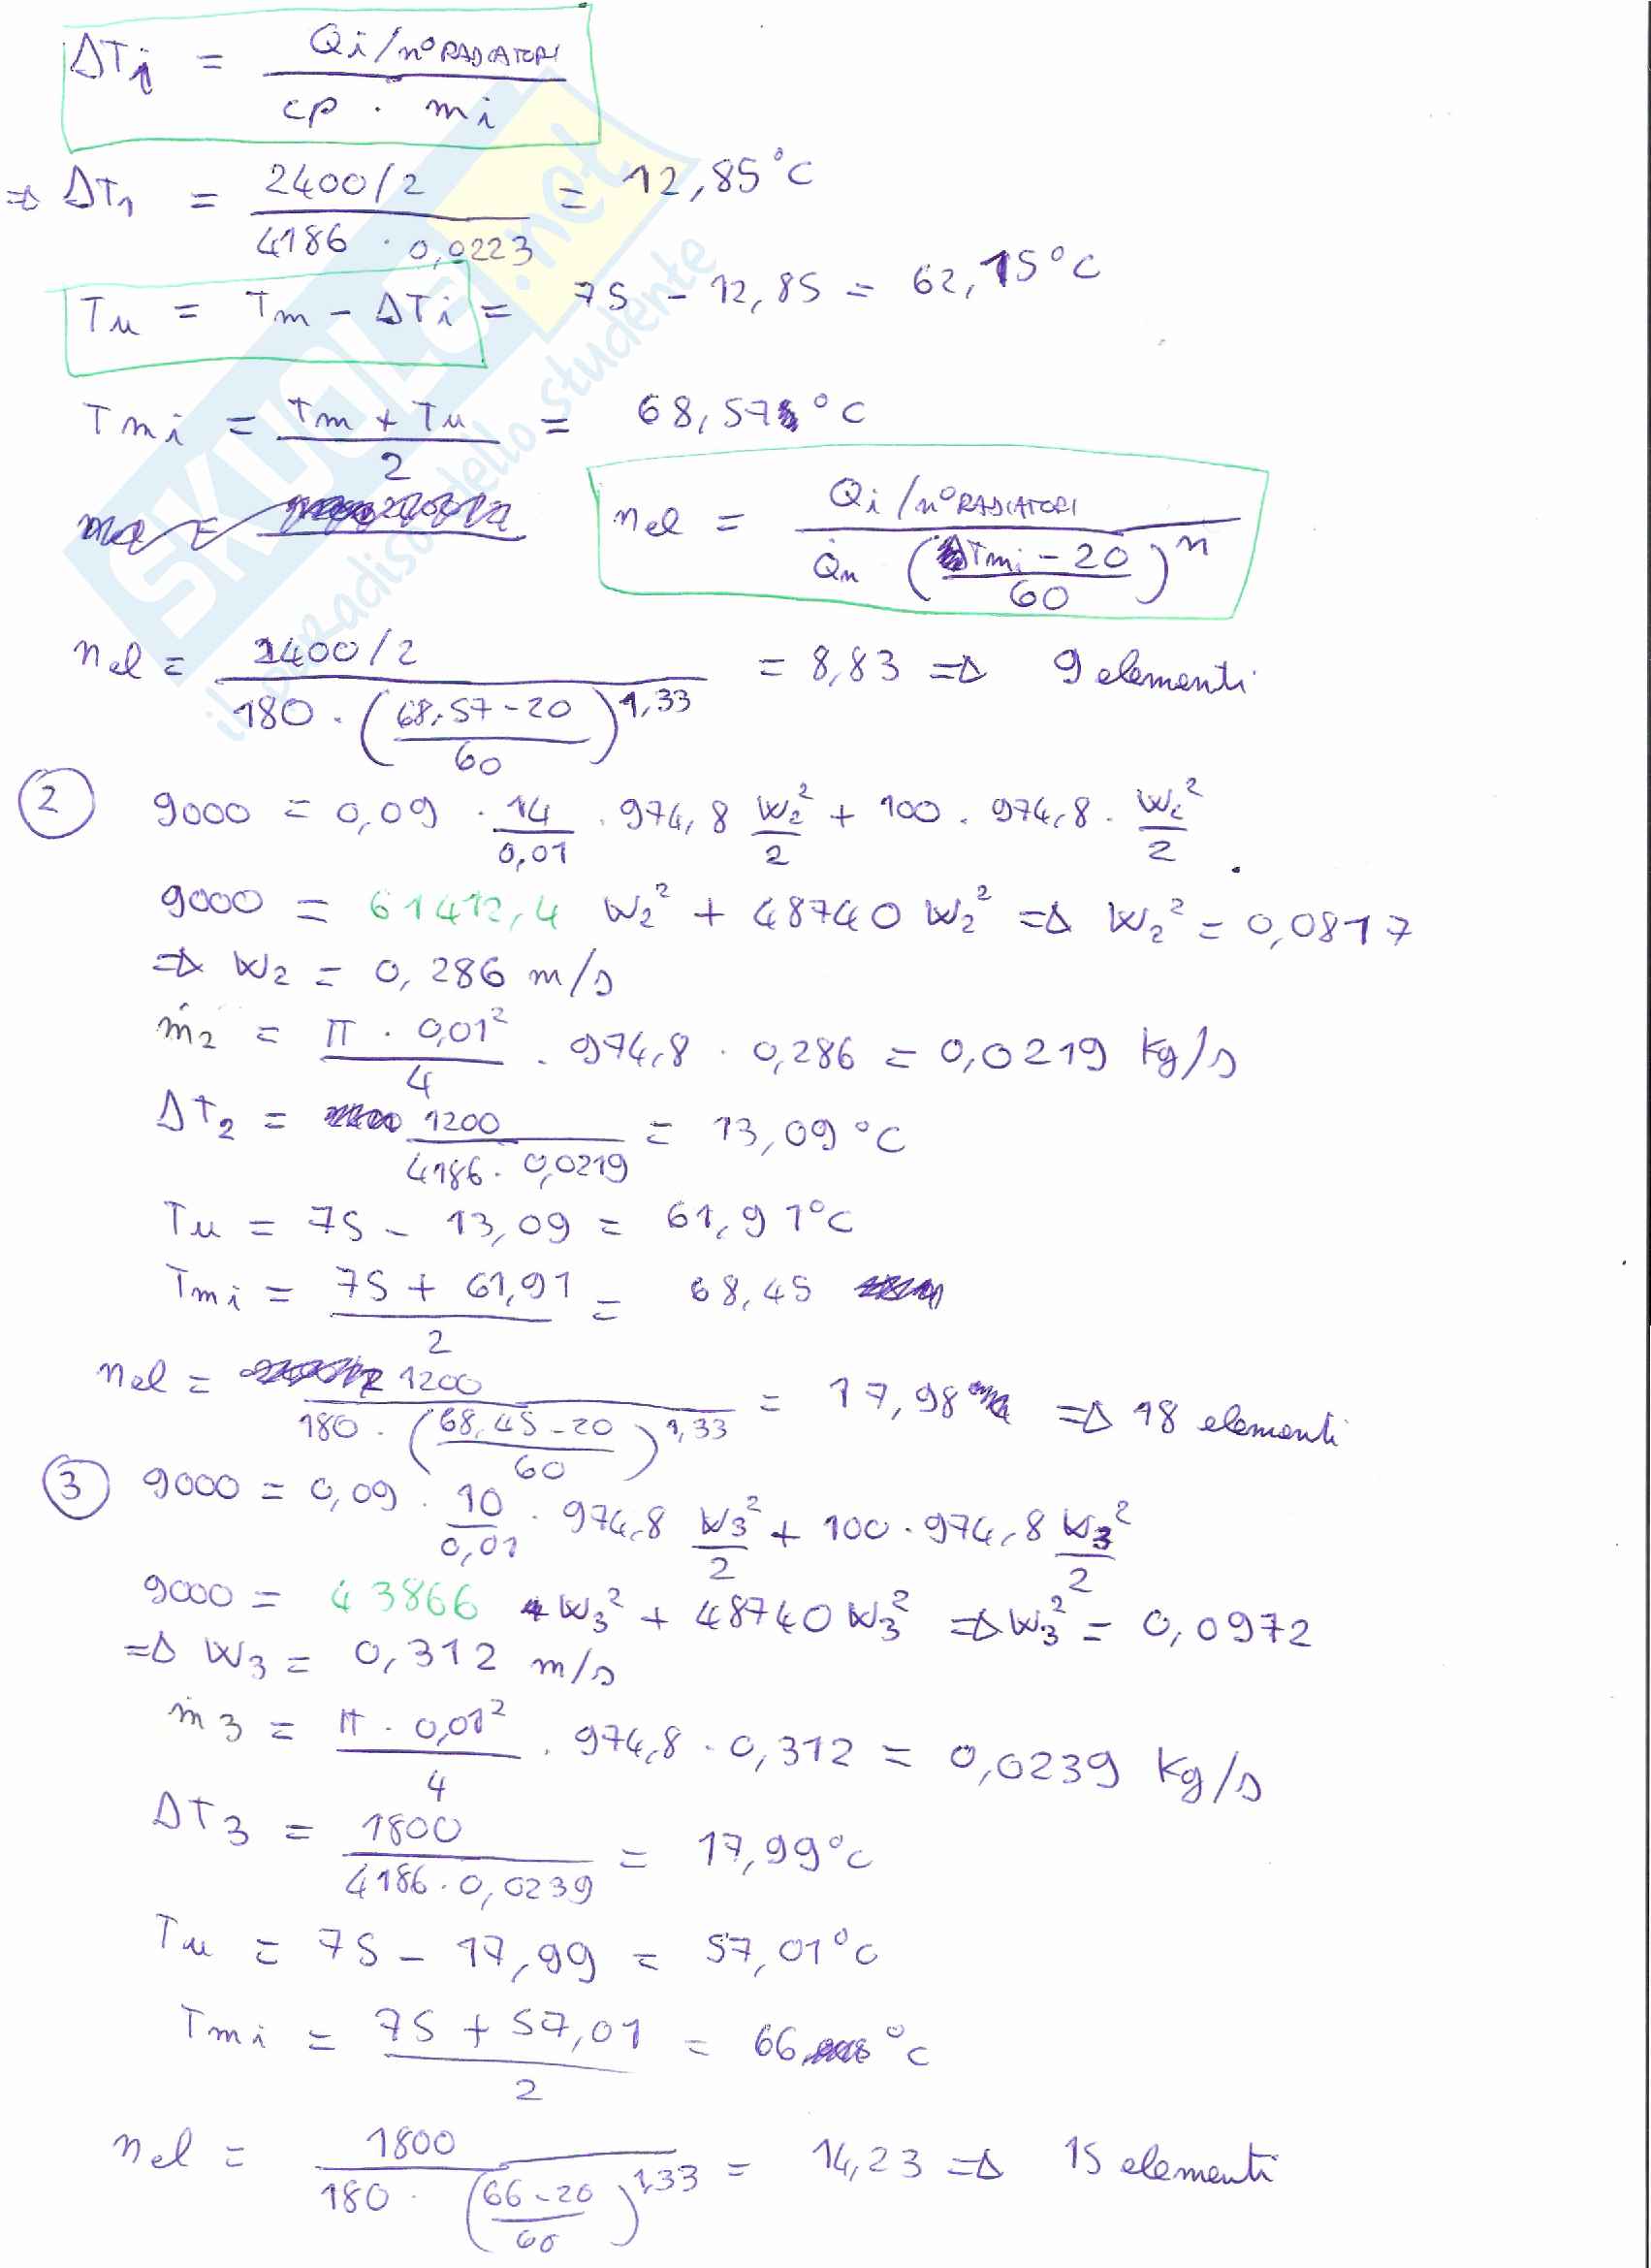 ΔTi = Qi/n° RADIATORI / cp · mi
⇒ ΔT1 = 2400/2 / 4186 · 0,0223 = 12,85°C
Tu = Tm - ΔTi = 75 - 12,85 = 62,15°C
Tmi = Tm + Tu / 2 = 68,57 °C
nel = Qi/n° RADIATORI / Q̇n (Tmi - 20 / 60)^n
nel = 2400/2 / 180 · (68,57-20 / 60)^1,33 = 8,83 ⇒ 9 elementi
② 9000 = 0,09 · 14/0,01 · 974,8 w2²/2 + 100 · 974,8 · w2²/2
9000 = 61412,4 w2² + 48740 w2² ⇒ w2² = 0,0817
⇒ w2 = 0,286 m/s
ṁ2 = π · 0,01² / 4 · 974,8 · 0,286 = 0,0219 kg/s
ΔT2 = 1200 / 4186 · 0,0219 = 13,09°C
Tu = 75 - 13,09 = 61,91°C
Tmi = 75 + 61,91 / 2 = 68,45
nel = 1200 / 180 · (68,45-20 / 60)^1,33 = 17,98 ⇒ 18 elementi
③ 9000 = 0,09 · 10/0,01 · 974,8 w3²/2 + 100 · 974,8 w3²/2
9000 = 43866 w3² + 48740 w3² ⇒ w3² = 0,0972
⇒ w3 = 0,312 m/s
ṁ3 = π · 0,01² / 4 · 974,8 · 0,312 = 0,0239 kg/s
ΔT3 = 1800 / 4186 · 0,0239 = 17,99°C
Tu = 75 - 17,99 = 57,01°C
Tmi = 75 + 57,01 / 2 = 66 °C
nel = 1800 / 180 · (66-20 / 60)^1,33 = 14,23 ⇒ 15 elementi
SKUOLA.net
il paradiso dello studente